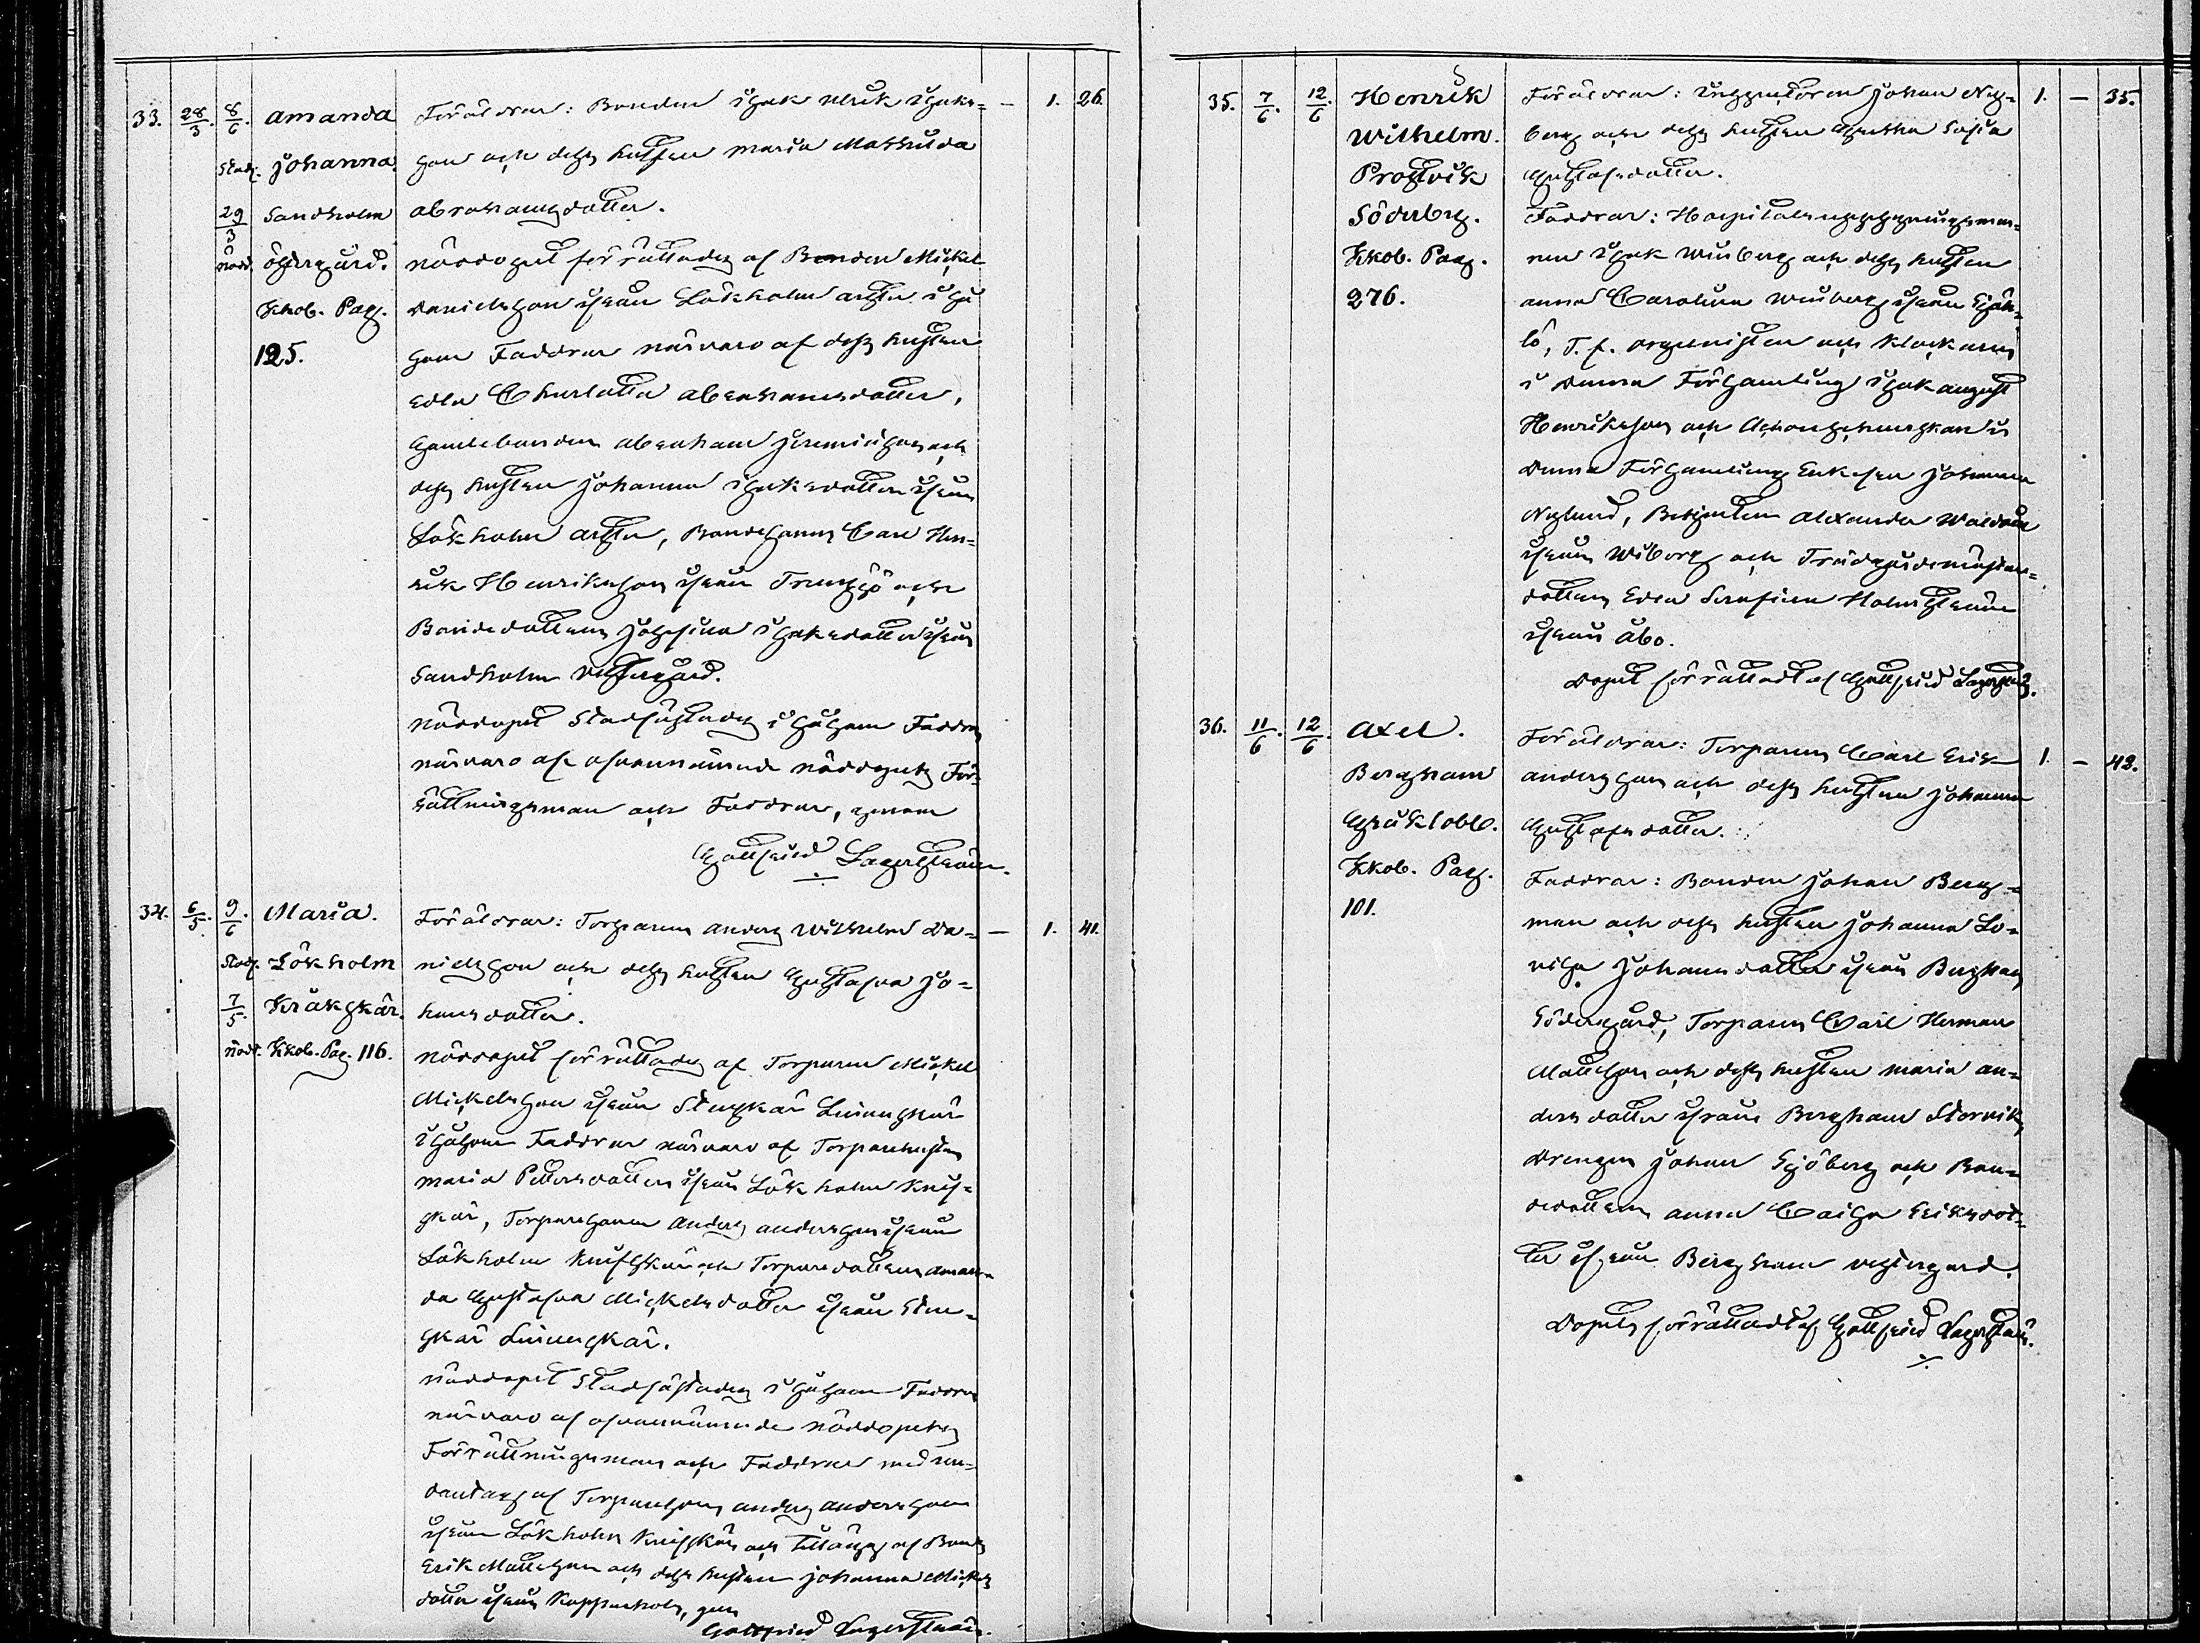 33. 28/3 8/6 Amanda Johanna Stadf. 29/3 nödd. Sandholm östergård. Kkob. Pag. 125.
Föräldrar: Bonden Isak Ulrik Isaks= — 1. 26.
son och dess hustru Maria Mathilda
Abrahamsdotter.
Nöddopet förrättades af Bonden Mickel
Danielsson ifrån Lökholm i så
som Faddrar närvaro af dess hustru
Edla Charlotta Abrahamsdotter,
Gamlebonden Abraham Jeremiasson och
dess hustru Johanna Isaksdotter ifrån
Lökholm, Bondesonen Carl Hen=
rik Henriksson ifrån Trunsö och
Bondedottren Josefina Isaksdotter ifrån
Sandholm vestergård.
Nöddopet Stadfästades i såsom Faddrar
närvaro af ofvannämnde nöddopets För=
rättningsman och Faddrar, genom
Gottfried Lagerström.
34. 6/5 9/6 Maria. Stadf. 7/5 nödd. Lökholm Kråkskär. Kkob. Pag. 116.
Föräldrar: Torparen Anders Wilhelm Da= — 1. 41.
nielsson och dess hustru Gustafva Jo=
hansdotter.
Nöddopet förrättades af Torparen Mickel
Mickelsson ifrån Stenskär
i såsom Faddrar närvaro af Torparehustrun
Maria Pettersdotter ifrån Lökholm Knif=
skär, Torparesonen Anders Andersson ifrån
Lökholm Knifskär och Torparedottren Aman
da Gustafva Mickelsdotter ifrån Sten=
skär
Nöddopet Stadfästades i såsom Faddrar
närvaro af ofvannämnde nöddopets
Förrättningsman och Faddrar med un=
dantag af Torparesonen Anders Andersson
ifrån Lökholm Knifskär och tillägg af Bonden
Erik Mattsson och dess hustru Johanna Mickels
dotter ifrån Kopparholm, gm
Gottfried Lagerström.
35. 7/6 12/6 Henrik Wilhelm. Prostvik Söderberg. Kkob. Pag. 276.
Föräldrar: Johan Ny= 1. — 35.
berg och dess hustru Agatha Sofia
Gustafsdotter.
Faddrar: Hospitals
nen Isak Winberg och dess hustru
Anna Carolina Winberg ifrån Själ=
ö, T. f. organisten och klockaren
i denna Församling Isak August
Henriksson och i
denna Församling Enkefru Johanna
Nylund, Betjenten Alexander
ifrån Wiborg och Trädgårdsmästare=
dottren Edla Serafina Holmström
ifrån Åbo.
Dopet förrättadt af Gottfried Lagerström.
36. 11/6 12/6 Axel. Bergham Kkob. Pag. 101.
Föräldrar: Torparen Carl Erik 1. — 42.
Andersson och dess hustru Johanna
Gustafsdotter.
Faddrar: Bonden Johan Berg=
man och dess hustru Johanna Lo=
visa Johansdotter ifrån Bergham
Södergård, Torparen Carl Herman
Mattsson och dess hustru Maria An=
dersdotter ifrån Bergham Storvik,
Drengen Johan Sjöberg och Bon=
dedottren Anna Caisa Eriksdot=
ter ifrån Bergham vestergård.
Dopet förrättadt af Gottfried Lagerström.